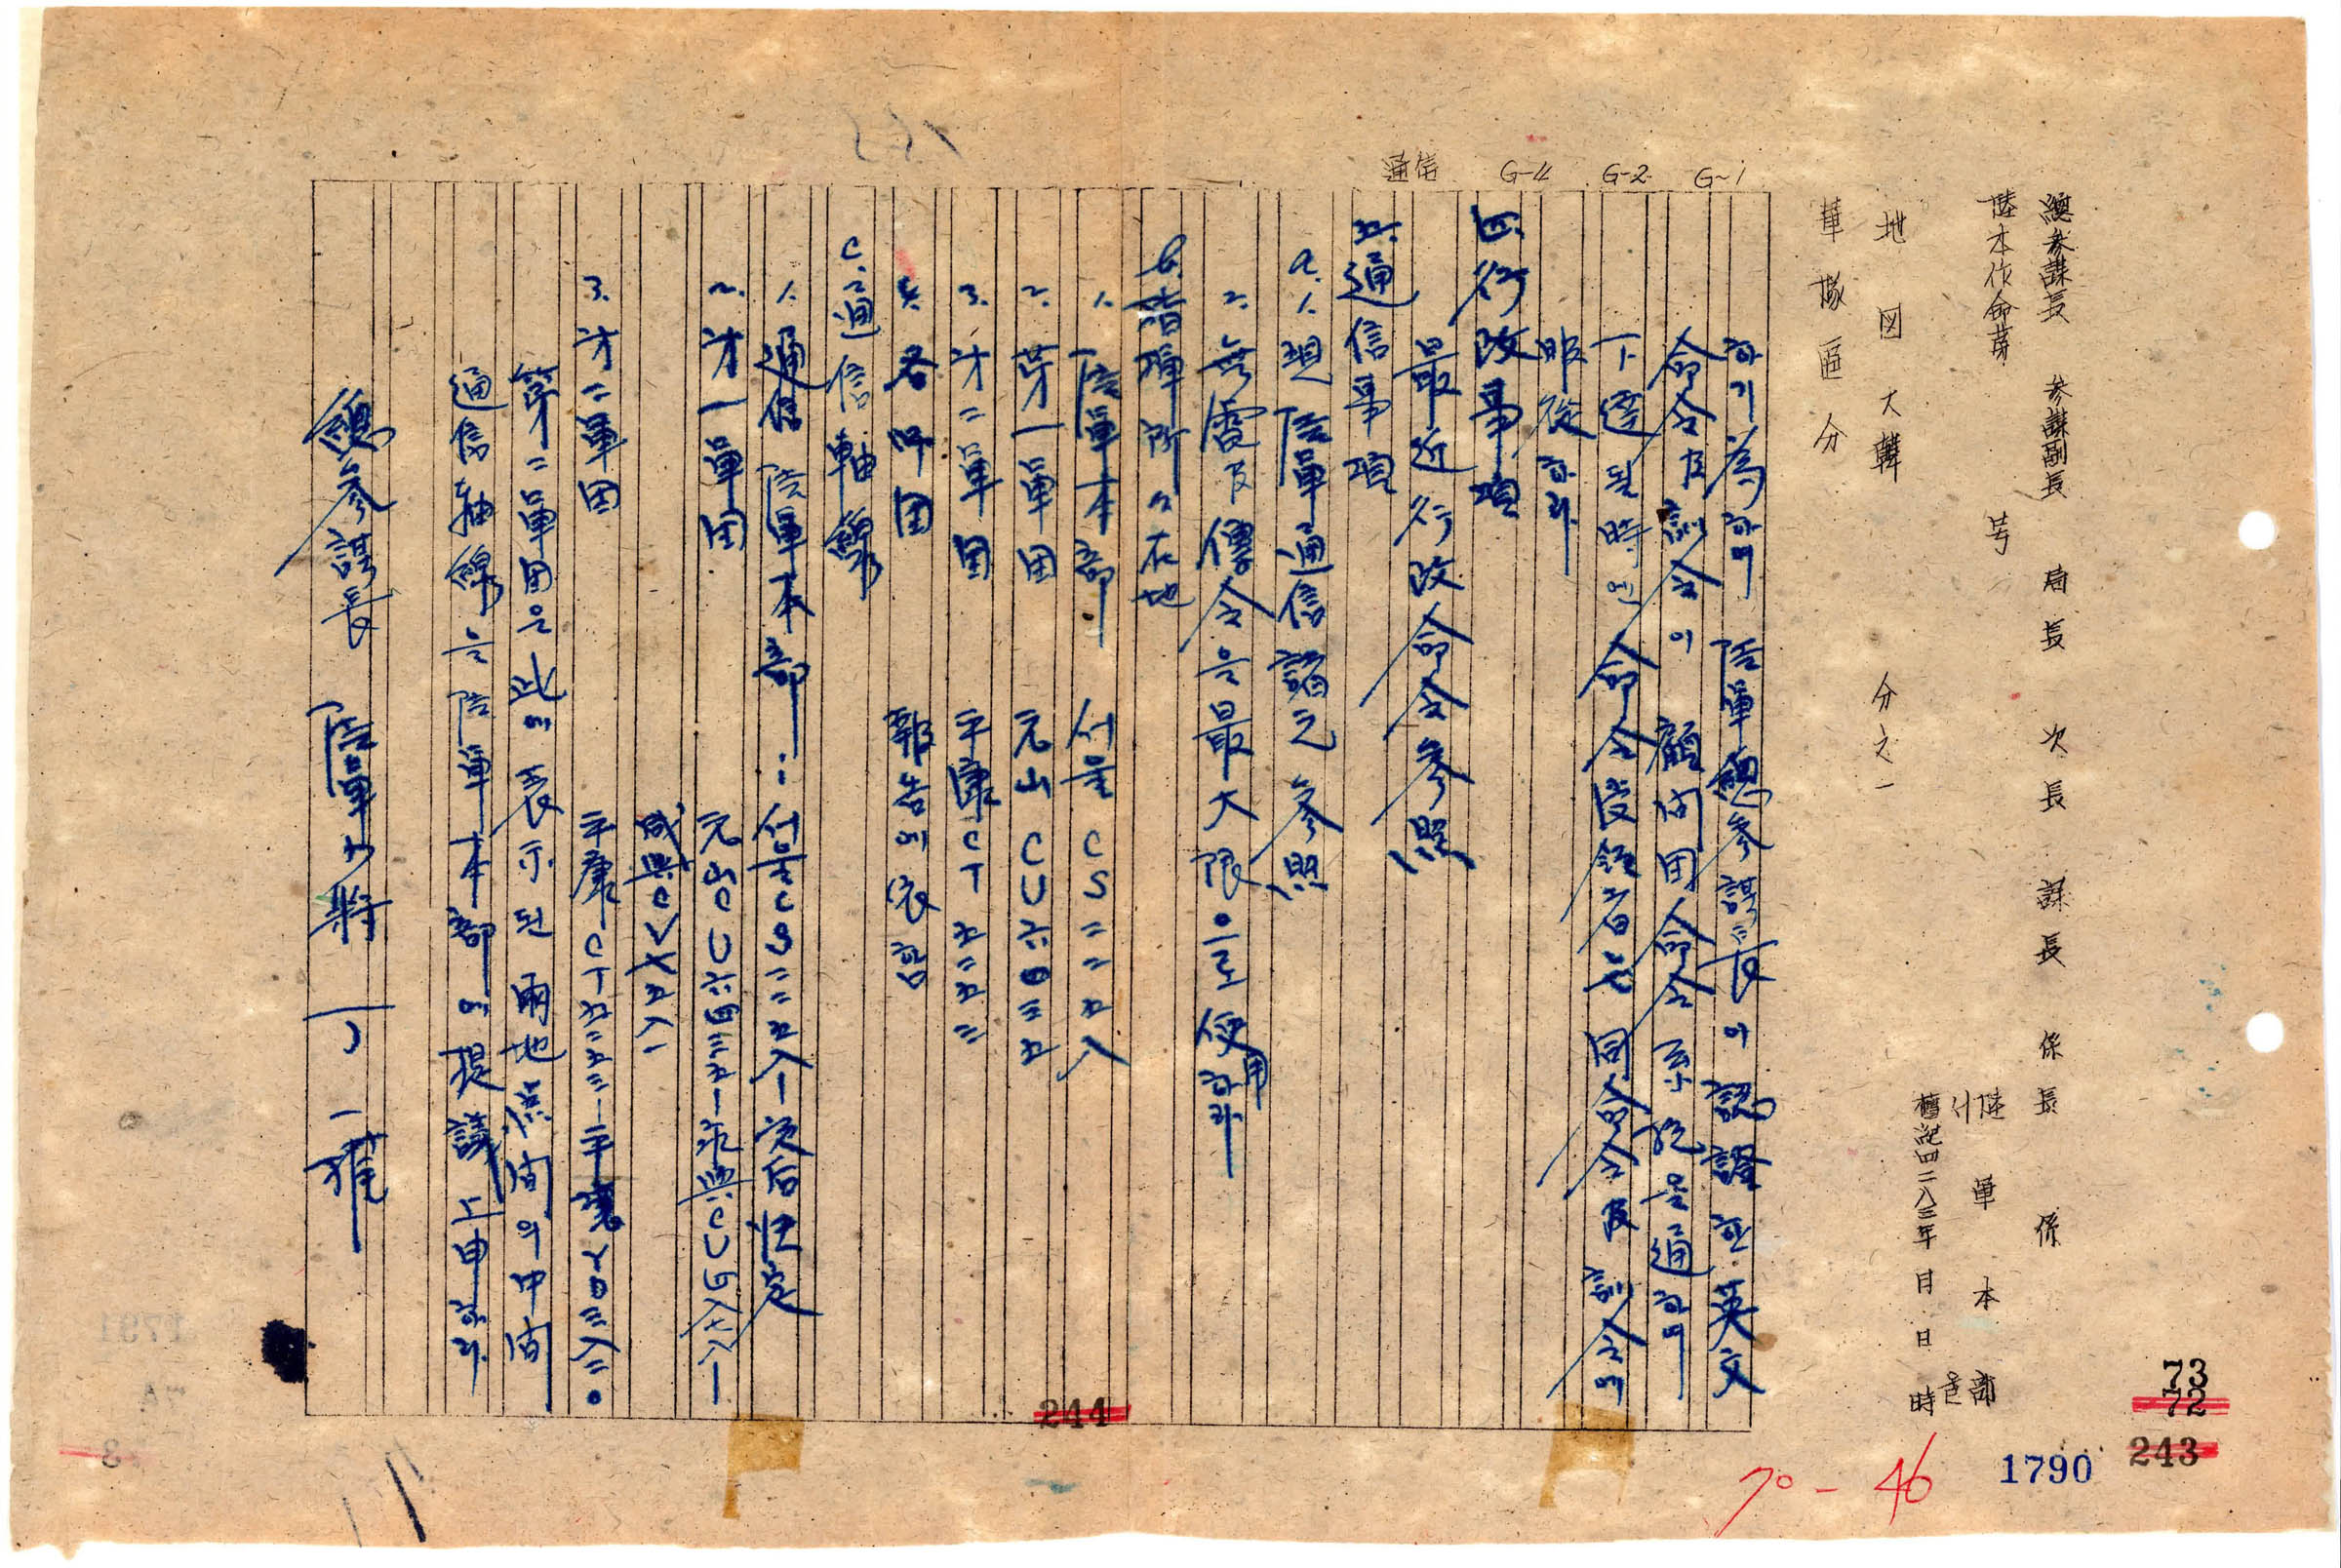 總參謀長 參謀副長 局長 次長 課長 係長 係
陸本作命第 号
陸軍本部
서울
檀紀四二八三年 月 日 時
地図 大韓 分之一
軍隊區分
G-1
G-2
G-4
通信
하기 為하여 陸軍總參謀長이 認證한 英文
命令及訓令이 顧问団命令系統을 通하여
下達될 時에 命令受領者는 同命令及訓令에
服從하라
四. 行政事項
最近行政命令參照
五. 通信事項
a. 1. 現陸軍通信諸元參照
2. 無電及傳令은 最大限으로 使用하라
b. 指揮所々在地
1. 陸軍本部 서울 CS二二五八
2. 第一軍団 元山 CU六四三五
3. 才二軍団 平康 CT五二五三
4. 各師団 報告에 依함
C. 通信軸線
1. 通信 陸軍本部: 서울CS二二五八—次后決定
2. 才一軍団 元山CU六四三五—永興CU四八七八—
咸興CV七五八一
3. 才二軍団 平康CT五二五三—平壤YD三八二〇
第二軍団은 此에 表示된 兩地点間의 中間
通信軸線을 陸軍本部에 提議上申하라
總參謀長 陸軍少將 丁一權
244
73
72
243
1790
70-46